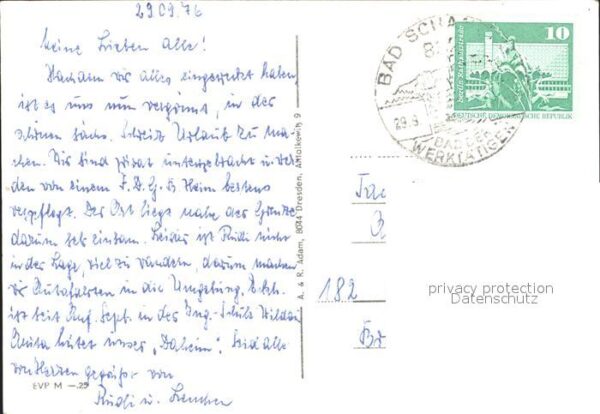 29.09.76
Meine Lieben alle!
Nachdem wir alles eingeweckt haben,
ist es uns nun vergönnt, in der
schönen Sächs. Schweiz Urlaub zu ma-
chen. Wir sind privat untergebracht u. wer-
den von einem F.D.G.B Heim bestens
verpflegt. Der Ort liegt nahe der Grenze
darum sehr einsam. Leider ist Rudi nicht
in der Lage, viel zu wandern, darum machen
wir Autofahrten in die Umgebung.
ist seit Anf. Sept. in der Ing.-Schule Wildau
hütet unser "Daheim". Seid alle
von Herzen gegrüßt von
Rudi u. Lenchen
EVP M —.25
A. & R. Adam, 8044 Dresden, 9
BAD SCHA
29.9
BAD DER
WERKTÄTIGEN
10
DEUTSCHE DEMOKRATISCHE REPUBLIK
182
Br
privacy protection
Datenschutz